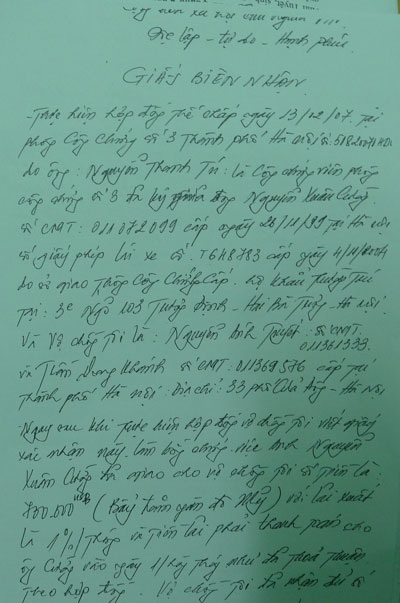 Cộng hòa xã hội chủ nghĩa
Độc lập - tự do - Hạnh phúc
GIẤY BIÊN NHẬN
- Thực hiện hợp đồng thế chấp ngày 13/12/07. tại
phòng Công chứng số 3 Thành phố Hà nội số:
do ông: Nguyễn Thanh Tú: là Công chứng viên phòng
công chứng số 3 đã ký ông Nguyễn Xuân
số CMT: 011072099 cấp ngày 26/11/99 tại Hà nội
số giấy phép lái xe số: T648783 cấp ngày
do sở giao thông Công Chính Cấp. hộ khẩu thường trú
tại: 3c Ngõ 103 Trương Định - Hai Bà Trưng - Hà nội.
Và Vợ chồng tôi là: Nguyễn Ánh Tuyết: số CMT:
011361333.
và Trần Khánh số CMT: 011369576 cấp tại
thành phố Hà nội: Địa chỉ: 33 phố - Hà Nội
Ngay sau khi thực hiện hợp đồng vợ chồng tôi viết giấy
xác nhận này làm bằng chứng việc Anh Nguyễn
Xuân đã giao cho vợ chồng tôi số tiền là
700.000 (Bảy trăm ngàn đô Mỹ) với lãi xuất
là 1%/Tháng và tiền lãi phải thanh toán cho
ông vào ngày 1 hàng tháng như đã thoả thuận
theo hợp đồng. Vợ chồng tôi đã nhận đủ số